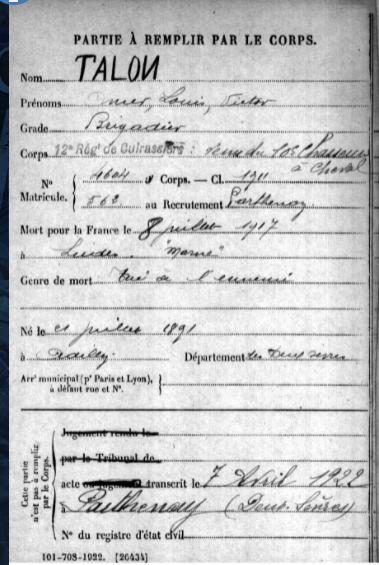 PARTIE À REMPLIR PAR LE CORPS.
Nom TALON
Prénoms Omer, Louis, Victor
Grade Brigadier
Corps 12e Régt de Cuirassiers : venu du 10e Chasseurs
à Cheval
No 4604 au Corps. — Cl. 1911
Matricule. 562 au Recrutement Parthenay
Mort pour la France le 8 juillet 1917
à Ludes "Marne"
Genre de mort tué à l'ennemi
Né le juillet 1891
à Département des Deux Sèvres
Arrt municipal (pr Paris et Lyon),
à défaut rue et No.
Cette partie
n'est pas à remplir
par le Corps.
Jugement rendu le
par le Tribunal de
acte ou jugement transcrit le 7 Avril 1922
à Parthenay (Deux-Sèvres)
No du registre d'état civil
101-708-1922. [26434]